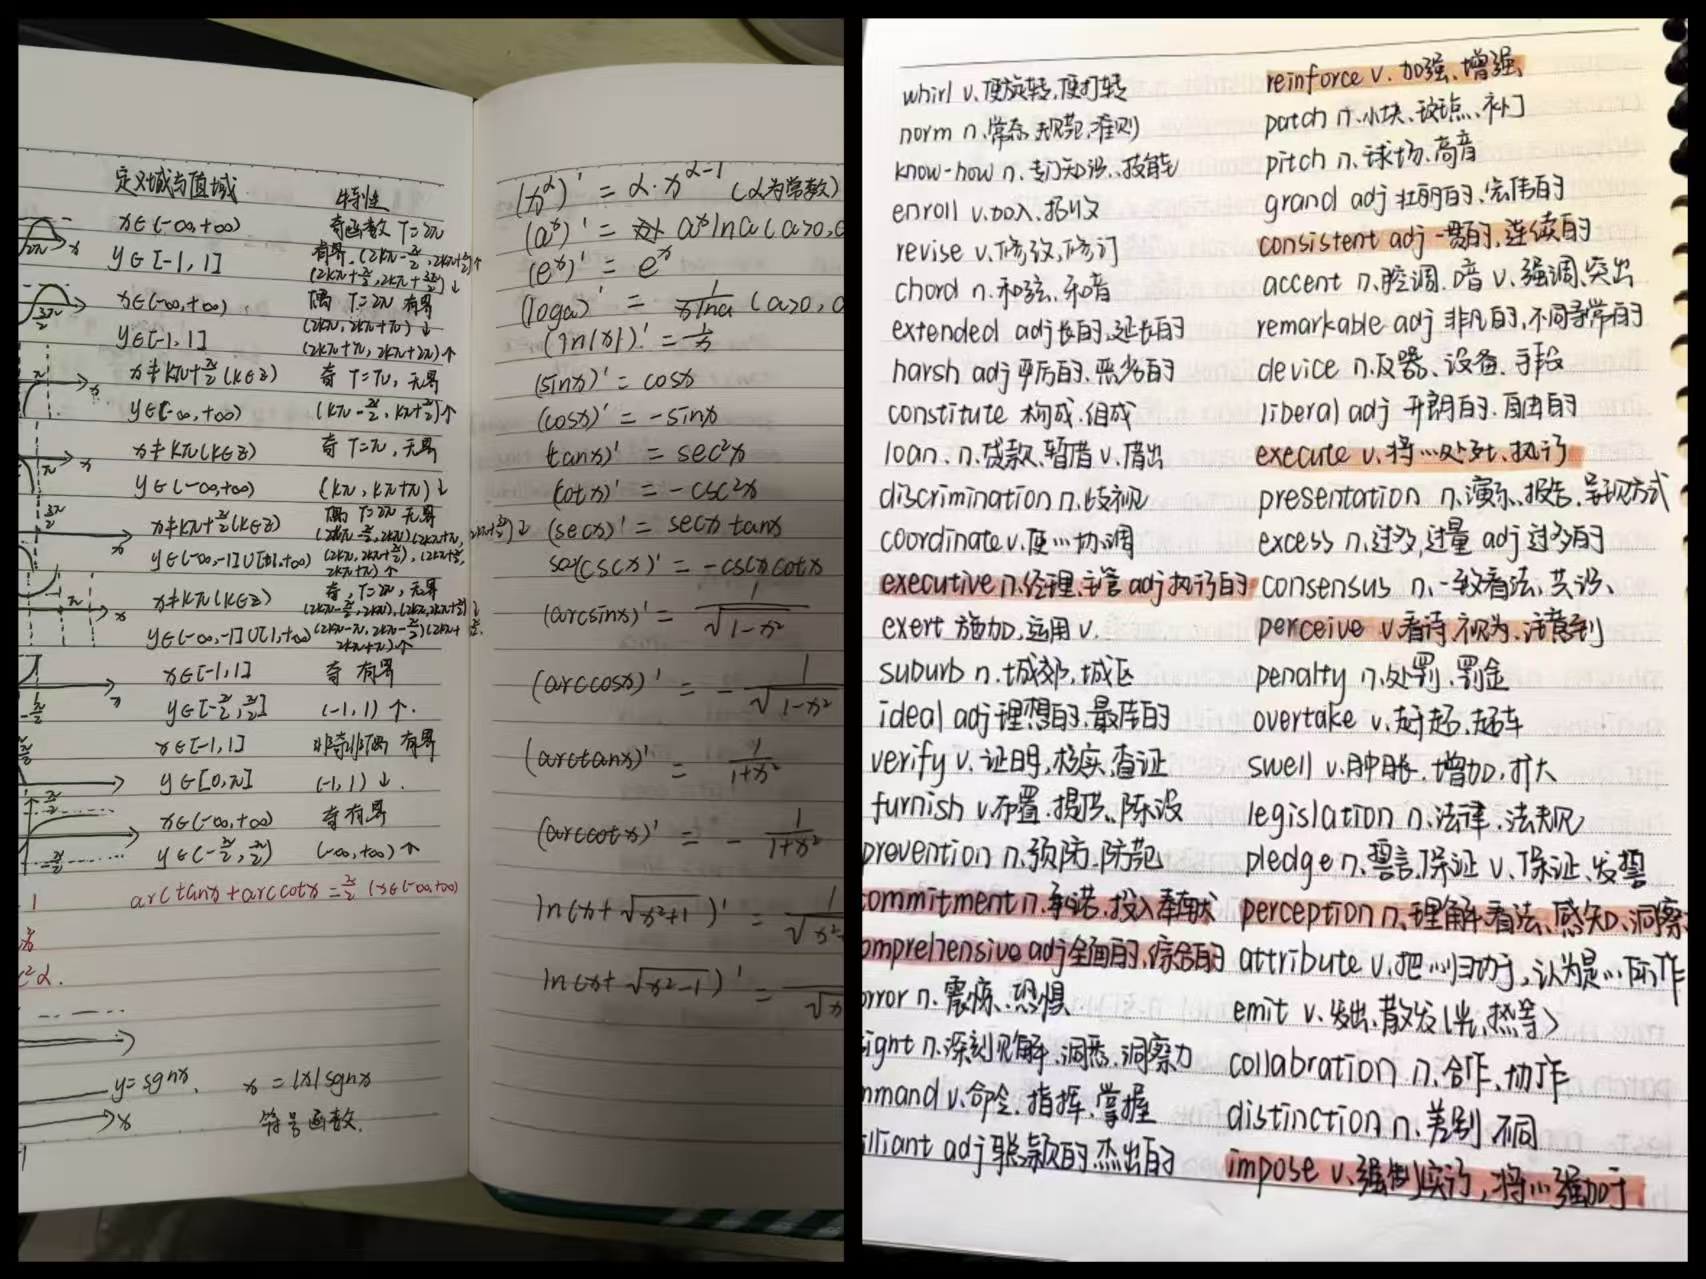 定义域与值域 特性
x∈(-∞,+∞) 奇函数 T=2π
y∈[-1,1] 有界.(2kπ-π/2,2kπ+π/2)↑
(2kπ+π/2,2kπ+3π/2)↓
x∈(-∞,+∞) 偶 T=2π 有界
(2kπ,2kπ+π)↓
y∈[-1,1] (2kπ+π,2kπ+2π)↑
x≠kπ+π/2(k∈z) 奇 T=π,无界
y∈(-∞,+∞) (kπ-π/2,kπ+π/2)↑
x≠kπ(k∈z) 奇 T=π,无界
y∈(-∞,+∞) (kπ,kπ+π)↓
x≠kπ+π/2(k∈z) 偶 T=2π 无界
y∈(-∞,-1]∪[1,+∞)
x≠kπ(k∈z) 奇,T=2π,无界
y∈(-∞,-1]∪[1,+∞)
x∈[-1,1] 奇 有界
y∈[-π/2,π/2] (-1,1)↑.
x∈[-1,1] 非奇非偶 有界
y∈[0,π] (-1,1)↓.
x∈(-∞,+∞) 奇 有界
y∈(-π/2,π/2) (-∞,+∞)↑
arctanx+arccotx=π/2 (x∈(-∞,+∞)
y=sgnx. x=|x|sgnx
符号函数.
(x^α)'=α·x^(α-1) (α为常数)
(a^x)'=a^x lna (a>0,
(e^x)'=e^x
(loga)'=1/(xlna) (a>0,
(ln|x|)'=1/x
(sinx)'=cosx
(cosx)'=-sinx
(tanx)'=sec²x
(cotx)'=-csc²x
(secx)'=secx tanx
(cscx)'=-cscxcotx
(arcsinx)'=1/√(1-x²)
(arccosx)'=-1/√(1-x²)
(arctanx)'=1/(1+x²)
(arccotx)'=-1/(1+x²)
ln(x+√(x²+1))'=1/√x²
ln(x+√(x²-1))'=
whirl v.使旋转,使打转
norm n.常态、规范、准则
know-how n.专门知识、技能
enroll v.加入.招收
revise v.修改,修订
chord n.和弦、和音
extended adj长的,延长的
harsh adj严厉的.恶劣的
constitute 构成.组成
loan.n.贷款,暂借 v.借出
discrimination n.歧视
coordinate v.使…协调
executive n.经理、主管 adj执行的
exert 施加,运用 v.
suburb n.城郊,城区
ideal adj理想的,最佳的
verify v.证明,核实,查证
furnish v.布置.提供.陈设
prevention n.预防,防范
ommitment n.承诺.投入奉献
omprehensive adj全面的,综合的
orror n.震惊、恐惧
sight n.深刻见解、洞悉、洞察力
mmand v.命令、指挥、掌握
illiant adj聪颖的.杰出的
reinforce v.加强、增强
patch n.小块、斑点、补丁
pitch n.球场、高音
grand adj壮丽的、宏伟的
consistent adj一贯的,连续的
accent n.腔调、口音 v.强调、突出
remarkable adj非凡的,不同寻常的
device n.仪器、设备、手段
liberal adj开朗的.自由的
execute v.将…处死、执行
presentation n.演示、报告、呈现方式
excess n.过多,过量 adj过多的
consensus n.一致看法、共识、
perceive v.看待,视为,注意到
penalty n.处罚、罚金
overtake v.赶超、超车
swell v.肿胀、增加、扩大
legislation n.法律、法规
pledge n.誓言,保证 v.保证、发誓
perception n.理解、看法、感知、洞察
attribute v.把…归功于,认为是…所作
emit v.发出、散发(光,热等)
collabration n.合作、协作
distinction n.差别 不同
impose v.强制实行,将…强加于